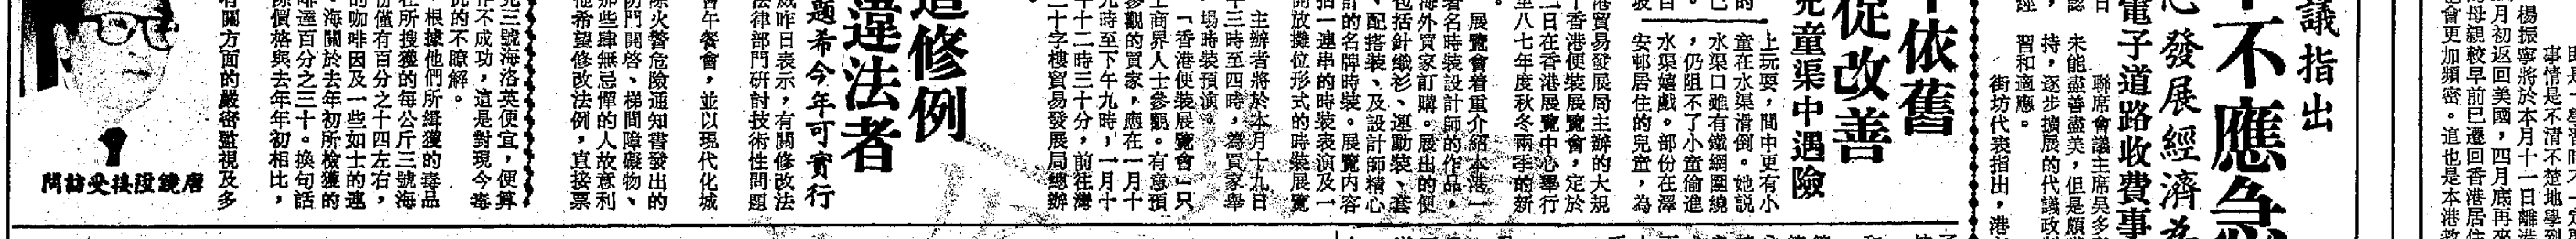 議指出
不應急
心發展經濟為
電子道路收費事
事情是不清不楚地學到
楊振寧將於本月十一日離港
月初返回美國，四月底再來
的母親較早前已遷回香港居住
會更加頻密。這也是本港教
聯席會議主席吳多
未能盡善盡美，但是願
持，逐步擴展的代議政制
習和適應。
街坊代表指出，港
依舊
促改善
兒童渠中遇險
上玩耍，間中更有小
童在水渠滑倒。她說
水渠口雖有鐵網圍繞
，仍阻不了小童偷進
水渠嬉戲。部份在澤
安邨居住的兒童，為
港貿易發展局主辦的大規
香港便裝展覽會，定於
二日在香港展覽中心舉行
至八七年度秋冬兩季的新
。
展覽會着重介紹本港一
著名時裝設計師的作品，
海外買家訂購。展出的便
包括針織衫、運動裝、套
、配搭裝、及設計師精心
計的名牌時裝。展覽內容
括一連串的時裝表演及一
開放攤位形式的時裝展覽
主辦者將於本月十九日
十三時至四時，為買家舉
一場時裝預演。
「香港便裝展覽會」只
工商界人士參觀。有意預
參觀的買家，應在一月十
九時至下午九時，一月十
十二時三十分，前往灣
二十字樓貿易發展局總辦
。
這修例
違法者
題希今年可實行
威昨日表示，有關修改法
法律部門研討技術性問題
午餐會，並以現代化城
除火警危險通知書發出的
防門開啓、梯間障礙物、
那些肆無忌憚的人故意利
他希望修改法例，直接票
三號海洛英便宜，便算
作不成功，這是對現今毒
況的不瞭解。
根據他們所緝獲的毒品
在所搜獲的每公斤三號海
份僅有百分之十四左右，
的咖啡因及一些如士的連
。海關於去年初所檢獲的
啡達百分之三十。換句話
際價格與去年年初相比，
有關方面的嚴密監視及多
唐鏡陞接受訪問